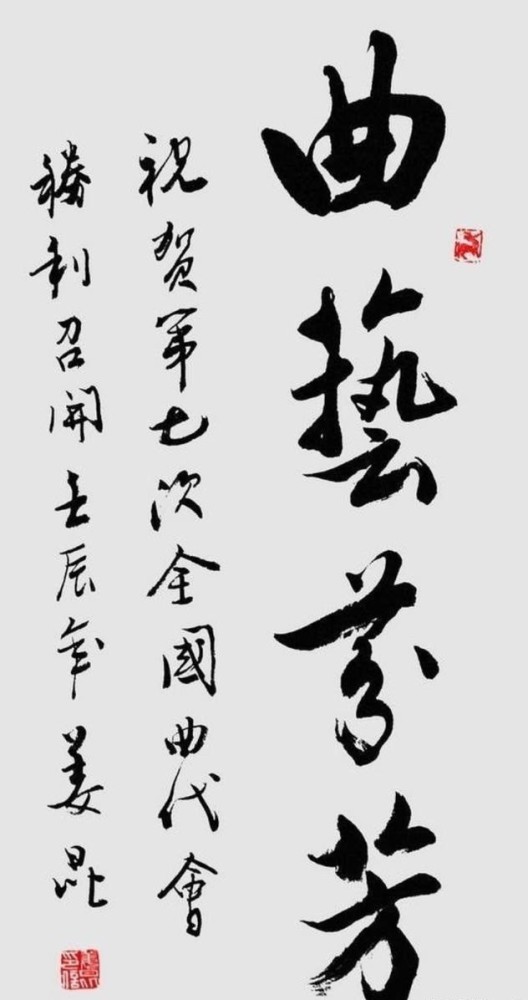 曲藝芬芳
祝賀第七次全國曲代會
勝利召開壬辰年姜昆